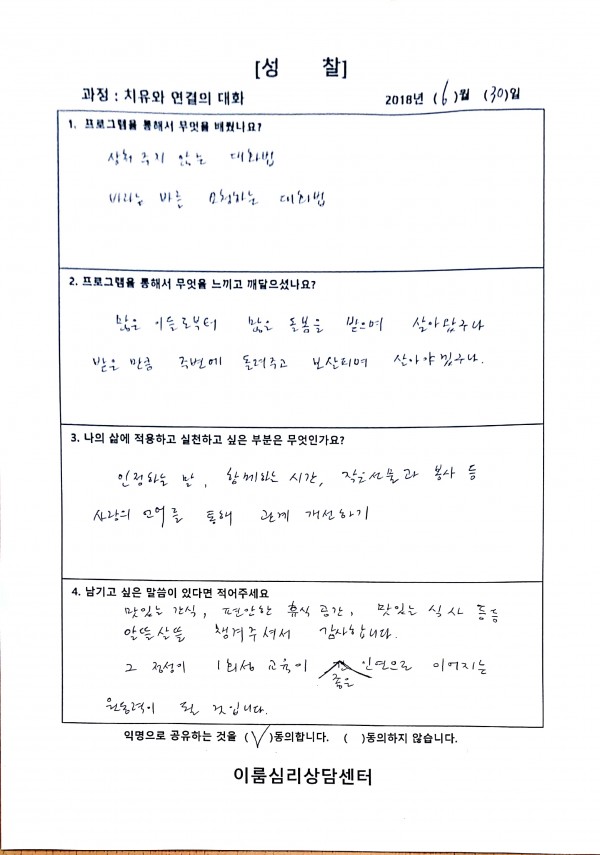 [성 찰]
과정 : 치유와 연결의 대화
2018년 ( 6 )월 (30)일
1. 프로그램을 통해서 무엇을 배웠나요?
상처 주지 않는 대화법
바라는 바를 요청하는 대화법
2. 프로그램을 통해서 무엇을 느끼고 깨달으셨나요?
많은 이들로부터 많은 돌봄을 받으며 살아왔구나
받은 만큼 주변에 돌려주고 살아야겠구나.
3. 나의 삶에 적용하고 실천하고 싶은 부분은 무엇인가요?
인정하는 말, 함께하는 시간, 작은선물과 봉사 등
사랑의 언어를 통해 관계 개선하기
4. 남기고 싶은 말씀이 있다면 적어주세요
맛있는 간식, 편안한 휴식 공간, 맛있는 식사 등등
알뜰살뜰 챙겨주셔서 감사합니다.
그 정성이 1회성 교육이 좋은 인연으로 이어지는
원동력이 될 것입니다.
익명으로 공유하는 것을 (√)동의합니다. ( )동의하지 않습니다.
이룸심리상담센터